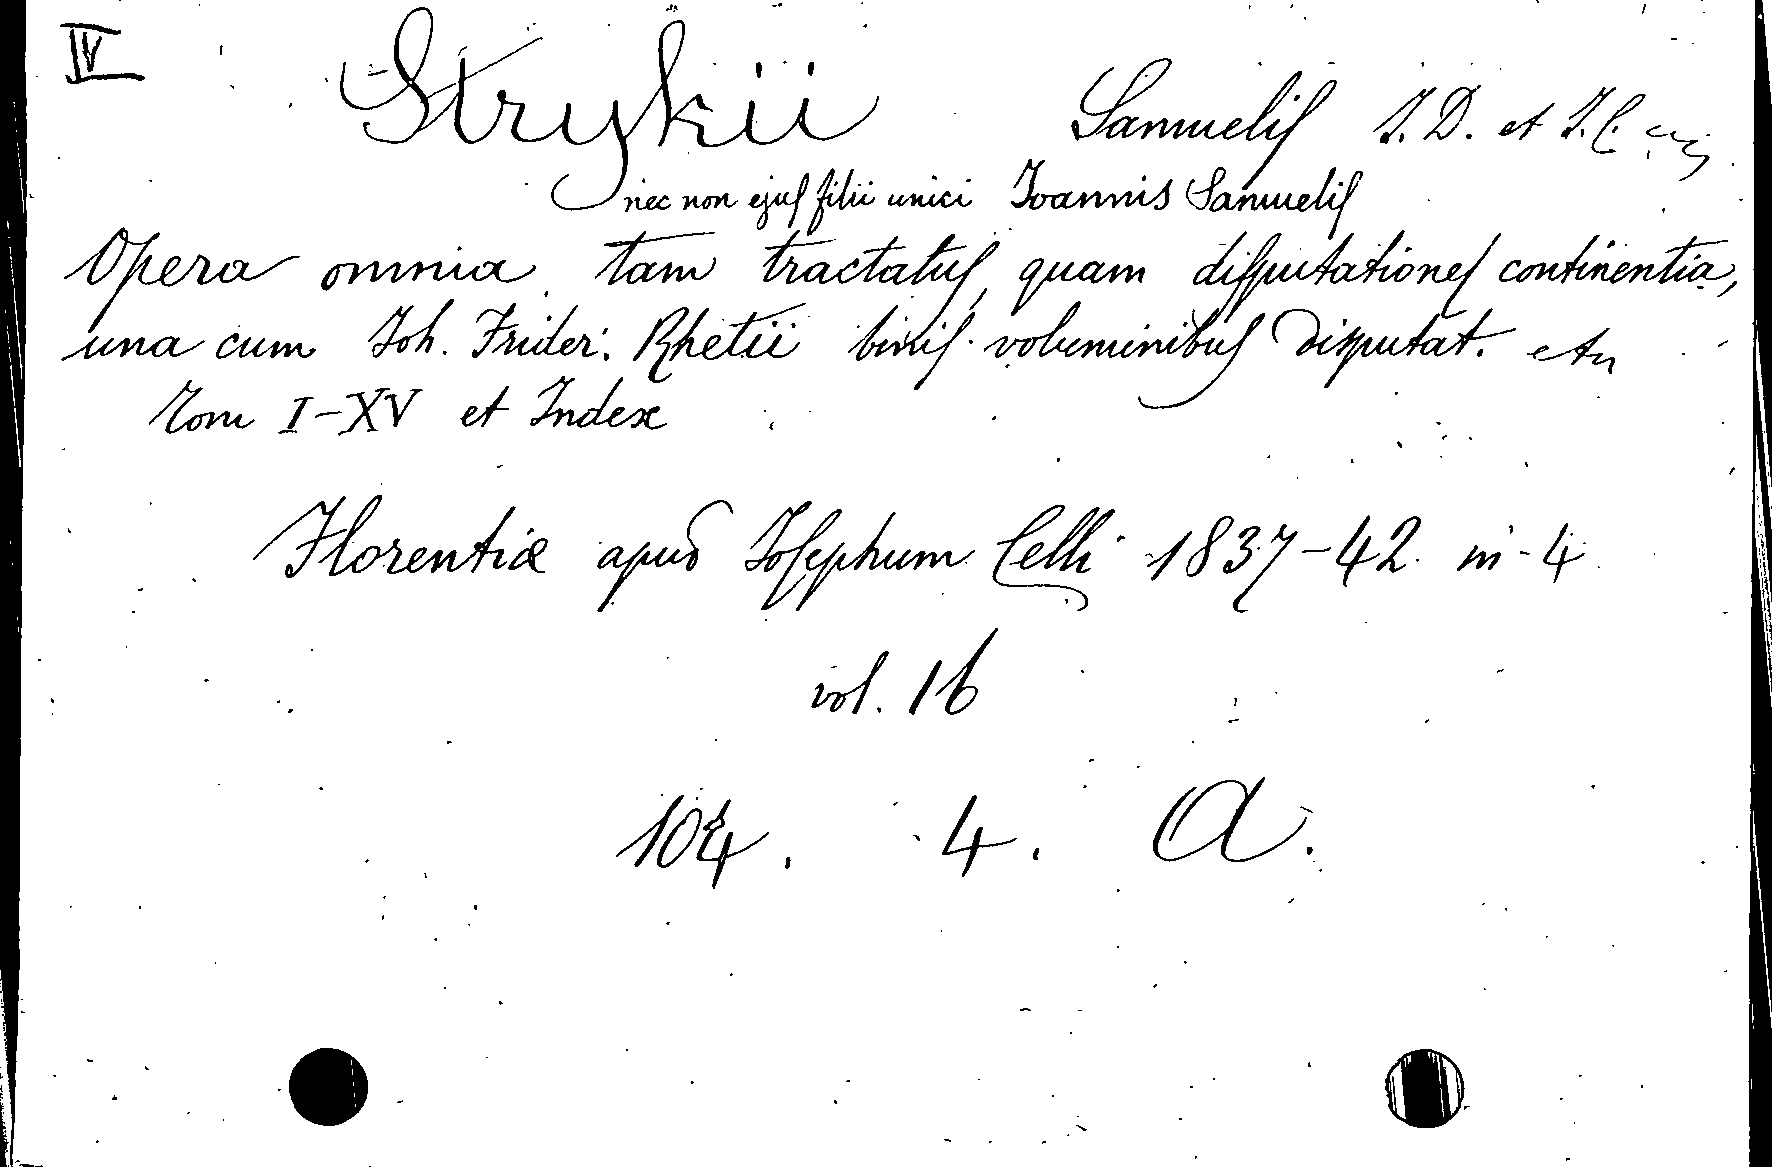 IV
Strykii Samuelis J. D. et J. C.
nec non ejus filii unici Joannis Samuelis
Opera omnia tam tractatus, quam disputationes continentia,
una cum Joh. Frider. Rhetii binis voluminibus disputat. etc
Tom I-XV et Index
Florentiæ apud Josephum Celli 1837-42 in-4
vol. 16
104. 4. A.